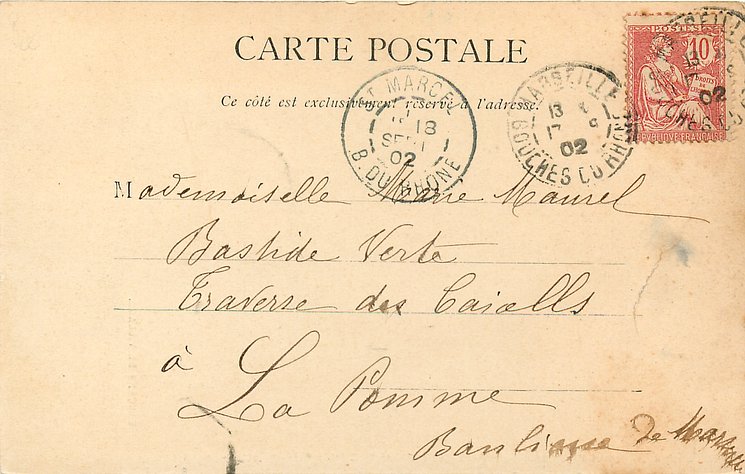 CARTE POSTALE
Ce côté est exclusivement réservé à l'adresse.
POSTES
10
DROITS DE L'HOMME
REPUBLIQUE FRANCAISE
MARSEILLE
13
17
02
BOUCHES DU RHONE
ST MARCEL
18
SEPT
02
B. DU RHONE
Mademoiselle Marie Maurel
Bastide Verte
Traverse des
à
La Pomme
Banlieue de